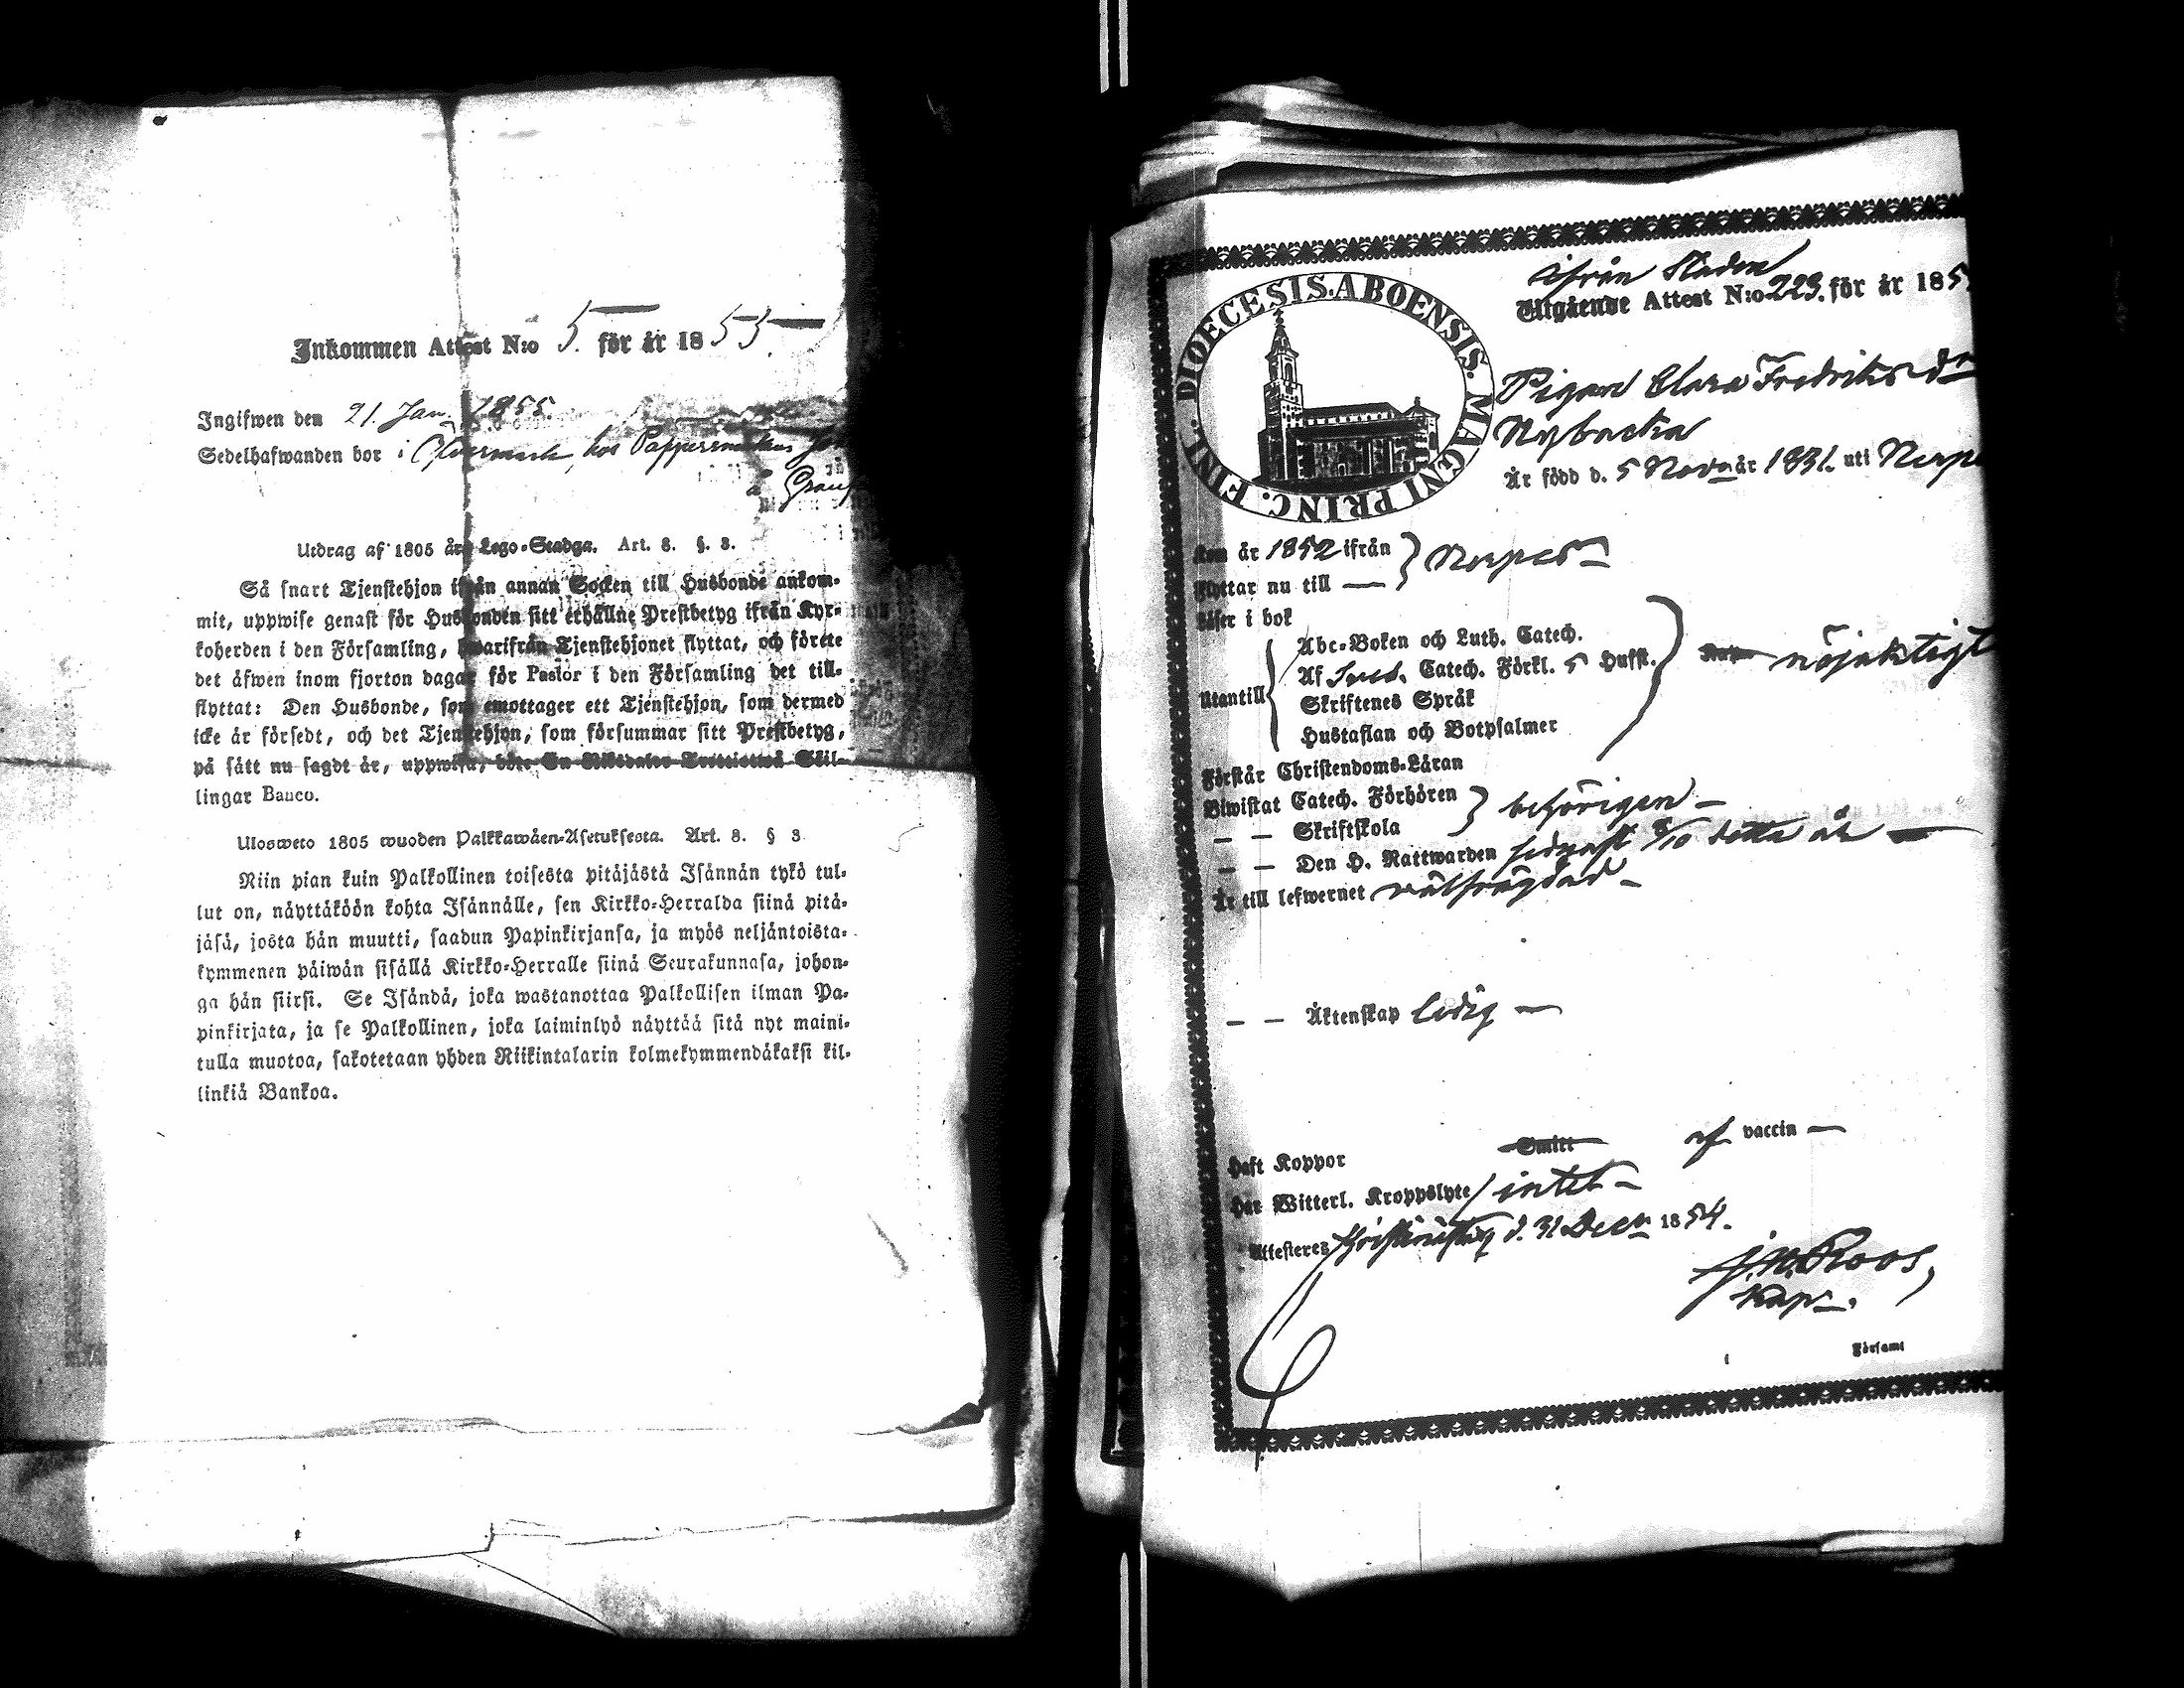 Inkommen Attest N:o 5. för år 1855.
Ingifwen den 21. Jan. 1855.
Sedelhafwanden bor i Öfvermark, hos
å
Utdrag af 1805 års Lego-Stadga. Art. 8. §. 3.
Så snart Tjenstehjon ifrån annan Socken till Husbonde ankom-
mit, uppwise genast för Husbonden sitt erhållne Prestbetyg ifrån Kyr-
koherden i den Församling, hwarifrån Tjenstehjonet flyttat, och förete
det äfwen inom fjorton dagar för Pastor i den Församling det till-
flyttat: Den Husbonde, som emottager ett Tjenstehjon, som dermed
icke är försedt, och det Tjenstehjon, som försummar sitt Prestbetyg,
på sätt nu sagdt är, uppwisa, böte En Riksdaler Trettiotwå Skil-
lingar Banco.
Ulosweto 1805 wuoden Palkkawäen-Asetuksesta. Art. 8. § 3
Niin pian kuin Palkollinen toisesta pitäjästä Isännän tykö tul-
lut on, näyttäköön kohta Isännälle, sen Kirkko-Herralda siinä pitä-
jäsä, josta hän muutti, saadun Papinkirjansa, ja myös neljäntoista-
kymmenen päiwän sisällä Kirkko-Herralle siinä Seurakunnasa, johon-
ga hän siirsi. Se Isändä, joka wastanottaa Palkollisen ilman Pa-
pinkirjata, ja se Palkollinen, joka laiminlyö näyttää sitä nyt maini-
tulla muotoa, sakotetaan yhden Riikintalarin kolmekymmendäkaksi kil-
linkiä Bankoa.
DIOECESIS. ABOENSIS. MAGNI PRINC. FINL.
ifrån Staden
Utgående Attest N:o 223. för år 185
Pigan Clara Fredriksdr
Nybacka
Är född d. 5 Novr år 1831. uti Nerpe
Kom år 1852 ifrån } Nerpes
Flyttar nu till —
Läser i bok
Utantill { Abc-Boken och Luth. Catech.
Af Sved. Catech. Förkl. 5 Hufst. } nöjaktigt
Skriftenes Språk
Hustaflan och Botpsalmer
Förstår Christendoms-Läran
Biwistat Catech. Förhören } behörigen —
— — Skriftskola
— — Den H. Nattwarden sednast 8/10 detta år —
Är till lefwernet välfrägdad —
— — Äktenskap ledig —
Haft Koppor Smitt af vaccin —
Har Witterl. Kroppslyte / intet —
Attesteres Christinestad d. 31 Decr 1854.
J. W. Roos,
Kap.
i Församl